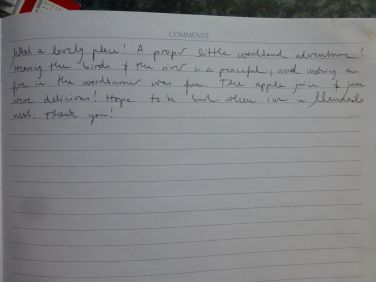 COMMENTS
What a lovely place! A proper little woodland adventure!
Hearing the birds & the river is so peaceful, and making a
fire in the woodburner was fun. The apple juice & jam
were delicious! Hope to be back when I am in
next. Thank you!